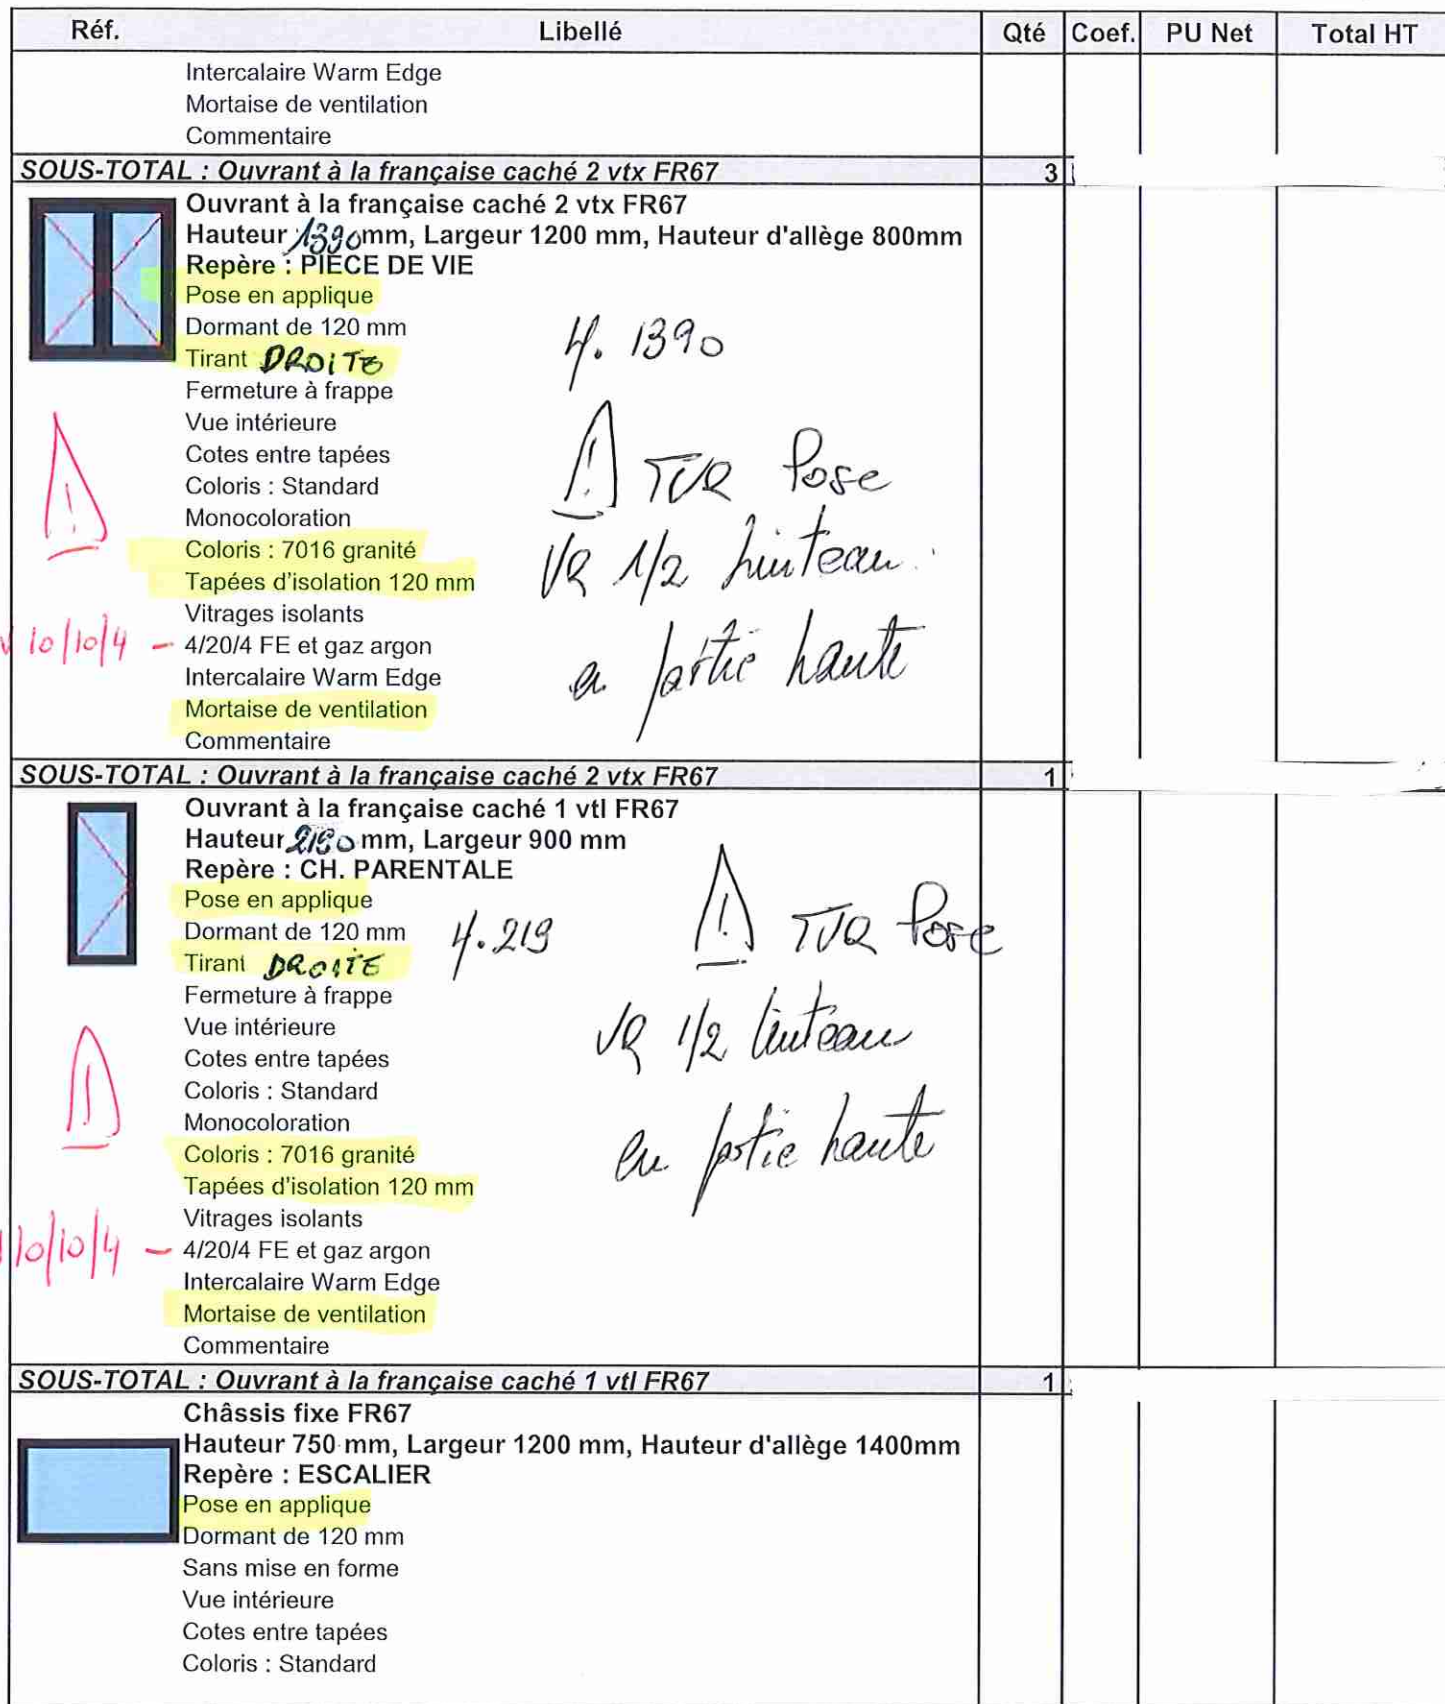 Réf. Libellé Qté Coef. PU Net Total HT
Intercalaire Warm Edge
Mortaise de ventilation
Commentaire
SOUS-TOTAL : Ouvrant à la française caché 2 vtx FR67 3
Ouvrant à la française caché 2 vtx FR67
Hauteur 1390 mm, Largeur 1200 mm, Hauteur d'allège 800mm
Repère : PIECE DE VIE
Pose en applique
Dormant de 120 mm
H. 1390
Tirant DROITE
Fermeture à frappe
Vue intérieure
Cotes entre tapées
! TVR Pose
Coloris : Standard
Monocoloration
Coloris : 7016 granité
VR 1/2 linteau
Tapées d'isolation 120 mm
Vitrages isolants
10/10/4 – 4/20/4 FE et gaz argon
partie haute
Intercalaire Warm Edge
Mortaise de ventilation
Commentaire
SOUS-TOTAL : Ouvrant à la française caché 2 vtx FR67 1
Ouvrant à la française caché 1 vtl FR67
Hauteur mm, Largeur 900 mm
Repère : CH. PARENTALE
Pose en applique
! TVR Pose
Dormant de 120 mm
H. 219
Tirant DROITE
Fermeture à frappe
Vue intérieure
VR 1/2 linteau
Cotes entre tapées
Coloris : Standard
Monocoloration
en partie haute
Coloris : 7016 granité
Tapées d'isolation 120 mm
Vitrages isolants
10/10/4 – 4/20/4 FE et gaz argon
Intercalaire Warm Edge
Mortaise de ventilation
Commentaire
SOUS-TOTAL : Ouvrant à la française caché 1 vtl FR67 1
Châssis fixe FR67
Hauteur 750 mm, Largeur 1200 mm, Hauteur d'allège 1400mm
Repère : ESCALIER
Pose en applique
Dormant de 120 mm
Sans mise en forme
Vue intérieure
Cotes entre tapées
Coloris : Standard